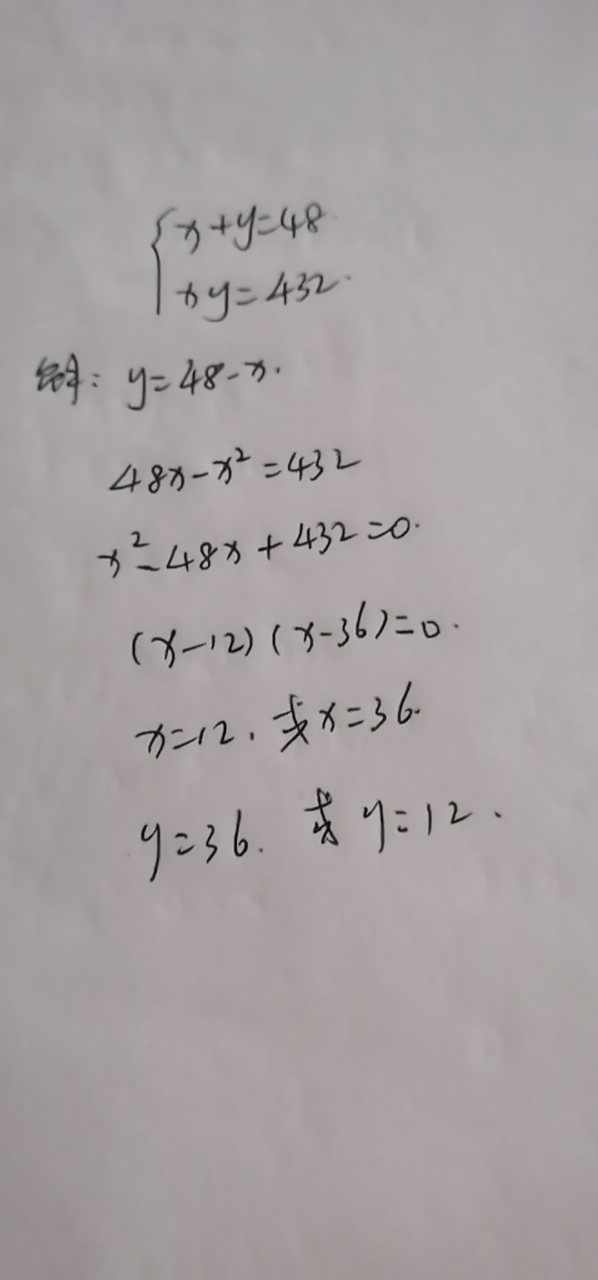 {x+y=48
xy=432.
解: y=48-x.
48x-x²=432
x²-48x+432=0.
(x-12)(x-36)=0.
x=12. 或x=36.
y=36. 或 y=12.